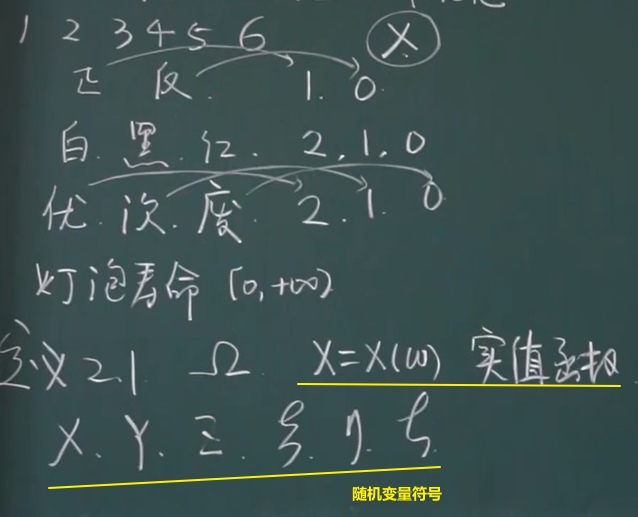 1 2 3 4 5 6 X
正 反. 1. 0
白. 黑. 红. 2, 1, 0
优. 次. 废. 2. 1. 0
灯泡寿命 [0,+∞)
定义2.1 Ω X=X(ω) 实值函数
X. Y. Z. ξ. η. ζ.
随机变量符号